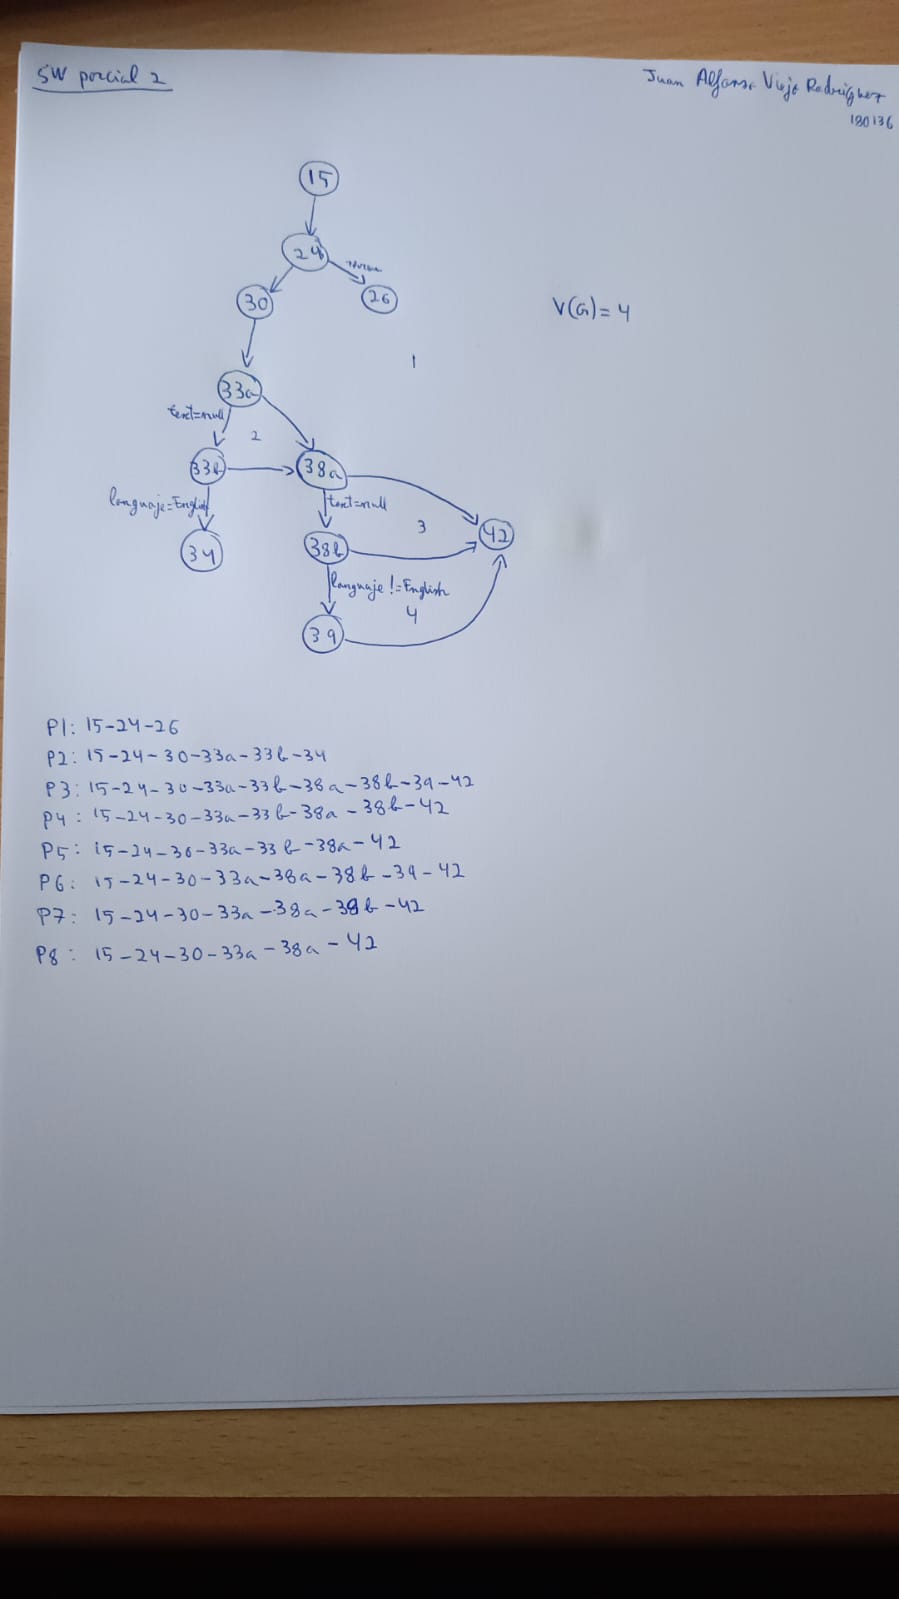 SW parcial 2
Juan Alfonso Viejo Rodríguez
180136
15
24
30
26
V(G)= 4
1
33a
text=null
2
33b
38a
languaje=English
text=null
3
42
34
38b
languaje !=English
4
39
P1: 15-24-26
P2: 15-24-30-33a-33b-34
P3: 15-24-30-33a-33b-38a-38b-39-42
P4: 15-24-30-33a-33b-38a-38b-42
P5: 15-24-30-33a-33b-38a-42
P6: 15-24-30-33a-38a-38b-39-42
P7: 15-24-30-33a-38a-38b-42
P8: 15-24-30-33a-38a-42